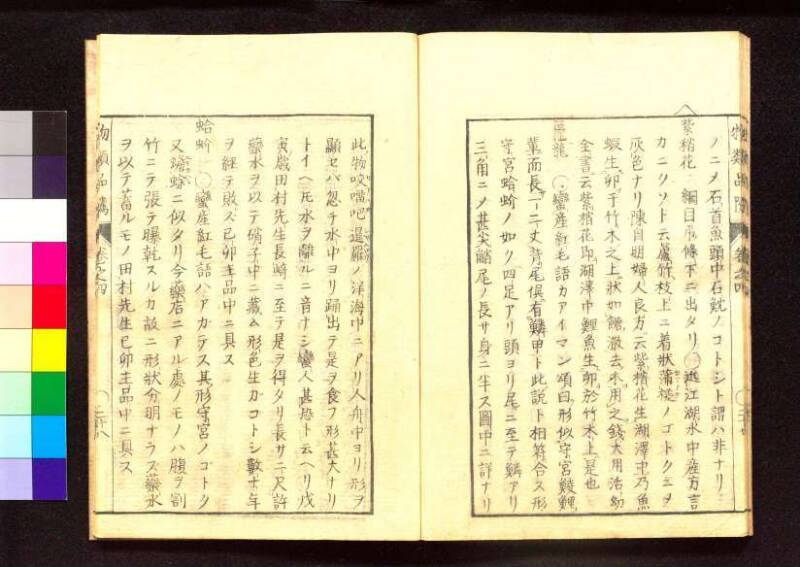 ノニメ石首魚頭中石魫ノコトシト謂ハ非ナリ
紫稍花 綱目吊條下ニ出タリ 近江湖水中産方言
カニクソト云蘆竹枝上ニ着狀蒲槌ノコトクニメ
灰色ナリ陳自明婦人良方云紫稍花生湖澤中乃魚
蝦生卵于竹木之上狀如糖澈去木用之錢大用活幼
全書云紫稍花即湖澤中鯉魚生卵於竹木上是也
龍 蠻産紅毛語カアイマン頌曰形似守宮鯪鯉
輩而長一二丈背尾倶有鱗甲ト此說ト相符合ス形
守宮蛤蚧ノ如ク四足アリ頭ヨリ尾ニ至テ鱗アリ
三角ニメ甚尖齬尾ノ長サ身ニ半ス圖中ニ詳ナリ
物類品隲 卷之四
此物咬𠺕吧暹羅ノ洋海中ニアリ人舟中ヨリ形ヲ
顯セバ忽チ水中ヨリ踊出テ是ヲ食フ形甚大ナリ
トイヘ𪜈水ヲ離ルニ音ナシ蠻人甚恐ト云ヘリ戊
寅歳田村先生長崎ニ至テ是ヲ得タリ長サ二尺許
藥水ヲ以テ硝子中ニ藏ム形色生カコトシ數十年
ヲ經テ敗ズ己卯主品中ニ具ス
蛤蚧 蠻産紅毛語ハアガテス其形守宮ノゴトク
又蟾蜍ニ似タリ今藥店ニアル處ノモノハ腹ヲ割
竹ニテ張テ曝乾スルカ故ニ形狀分明ナラス藥水
ヲ以テ蓄ルモノ田村先生己卯主品中ニ具ス
物類品隲 卷之四 二十八